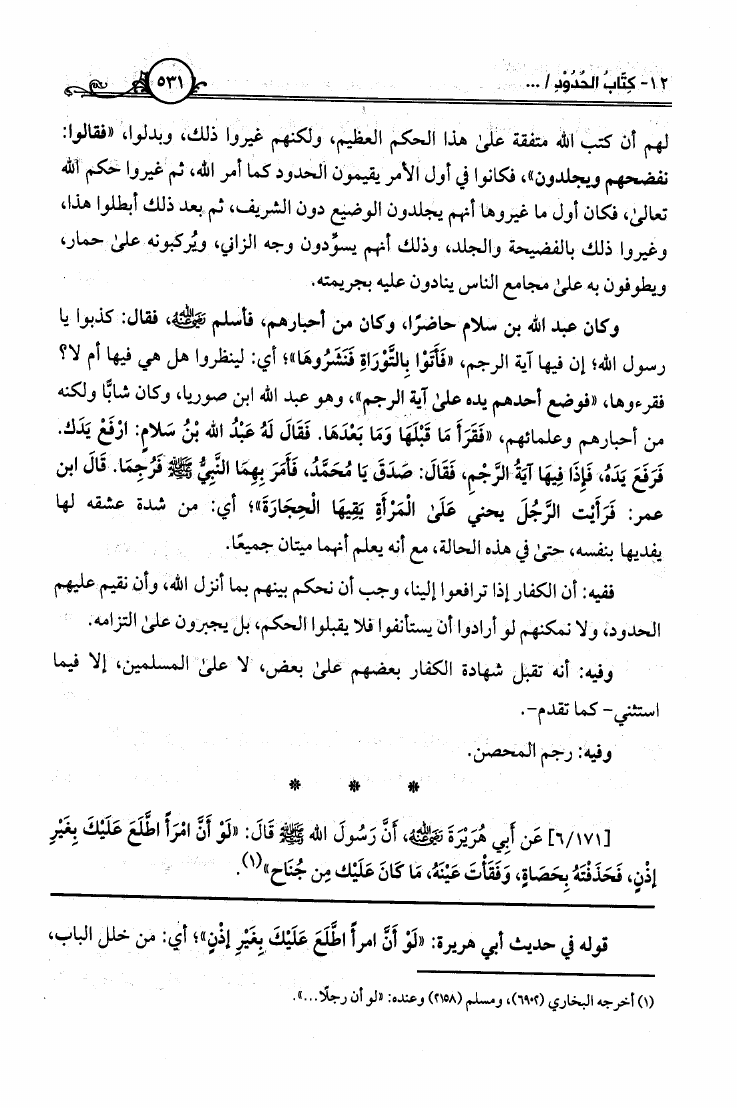 ١٢- كِتَابُ الحُدُوْدِ / ...
٥٣١
لهم أن كتب الله متفقة علىٰ هذا الحكم العظيم، ولكنهم غيروا ذلك، وبدلوا، «فقالوا:
نفضحهم ويجلدون»، فكانوا في أول الأمر يقيمون الحدود كما أمر الله، ثم غيروا حكم الله
تعالىٰ، فكان أول ما غيروها أنهم يجلدون الوضيع دون الشريف، ثم بعد ذلك أبطلوا هذا،
وغيروا ذلك بالفضيحة والجلد، وذلك أنهم يسوِّدون وجه الزاني، ويُركبونه علىٰ حمار،
ويطوفون به علىٰ مجامع الناس ينادون عليه بجريمته.
وكان عبد الله بن سلام حاضرًا، وكان من أحبارهم، فأسلم رَضِيَ اللهُ عَنْهُ، فقال: كذبوا يا
رسول الله؛ إن فيها آية الرجم، «فَأَتَوْا بِالتَّوْرَاةِ فَنَشَرُوهَا»؛ أي: لينظروا هل هي فيها أم لا؟
فقرءوها، «فوضع أحدهم يده علىٰ آية الرجم»، وهو عبد الله ابن صوريا، وكان شابًّا ولكنه
من أحبارهم وعلمائهم، «فَقَرَأَ مَا قَبْلَهَا وَمَا بَعْدَهَا. فَقَالَ لَهُ عَبْدُ الله بْنُ سَلَامٍ: ارْفَعْ يَدَكَ.
فَرَفَعَ يَدَهُ، فَإِذَا فِيهَا آيَةُ الرَّجْمِ، فَقَالَ: صَدَقَ يَا مُحَمَّدُ، فَأَمَرَ بِهِمَا النَّبِيُّ ﷺ فَرُجِمَا. قَالَ ابن
عمر: فَرَأَيْت الرَّجُلَ يحني عَلَىٰ الْمَرْأَةِ يَقِيهَا الْحِجَارَةَ»؛ أي: من شدة عشقه لها
يفديها بنفسه، حتىٰ في هذه الحالة، مع أنه يعلم أنهما ميتان جميعًا.
ففيه: أن الكفار إذا ترافعوا إلينا، وجب أن نحكم بينهم بما أنزل الله، وأن نقيم عليهم
الحدود، ولا نمكنهم لو أرادوا أن يستأنفوا فلا يقبلوا الحكم، بل يجبرون علىٰ التزامه.
وفيه: أنه تقبل شهادة الكفار بعضهم علىٰ بعض، لا علىٰ المسلمين، إلا فيما
استثني- كما تقدم-.
وفيه: رجم المحصن.
* * *
[٦/١٧١] عَن أَبِي هُرَيْرَةَ رَضِيَ اللهُ عَنْهُ، أَنَّ رَسُولَ الله ﷺ قَالَ: «لَوْ أَنَّ امْرَأً اطَّلَعَ عَلَيْكَ بِغَيْرِ
إِذْنٍ، فَحَذَفْتَهُ بِحَصَاةٍ، وَفَقَأْتَ عَيْنَهُ، مَا كَانَ عَلَيْكَ مِن جُنَاحٍ»(١).
قوله في حديث أبي هريرة: «لَوْ أَنَّ امرأً اطَّلَعَ عَلَيْكَ بِغَيْرِ إِذْنٍ»؛ أي: من خلل الباب،
(١) أخرجه البخاري (٦٩٠٢)، ومسلم (٢١٥٨) وعنده: «لو أن رجلًا...».